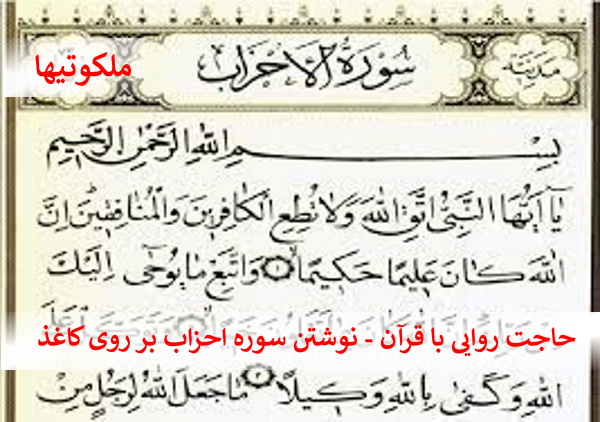 ملکوتیها
سُورَةُ الْاَحْزَابِ
مدنية
بِسْمِ اللّٰهِ الرَّحْمٰنِ الرَّحِيمِ
يَٓا اَيُّهَا النَّبِيُّ اتَّقِ اللّٰهَ وَلَا تُطِعِ الْكَافِرِينَ وَالْمُنَافِقِينَ اِنَّ
اللّٰهَ كَانَ عَلِيمًا حَكِيمًا ١ وَاتَّبِعْ مَا يُوحٰٓى اِلَيْكَ
حاجت روایی با قرآن - نوشتن سوره احزاب بر روی کاغذ
اللّٰهِ وَكَفٰى بِاللّٰهِ وَكِيلًا ٣ مَا جَعَلَ اللّٰهُ لِرَجُلٍ مِنْ